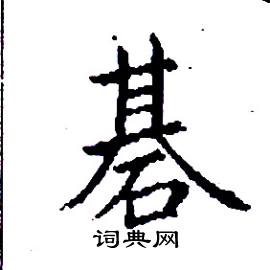 碁
词典网